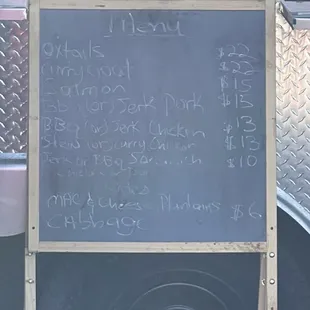 Menu
oxtails $22
curry goat $22
Salmon $15
BBQ (or) Jerk Pork $15
BBQ (or) Jerk Chicken $13
Stew (or) curry Chicken $13
Jerk or BBQ Sandwich $10
Sides
MAC & Cheese Plantains $6
CABbage